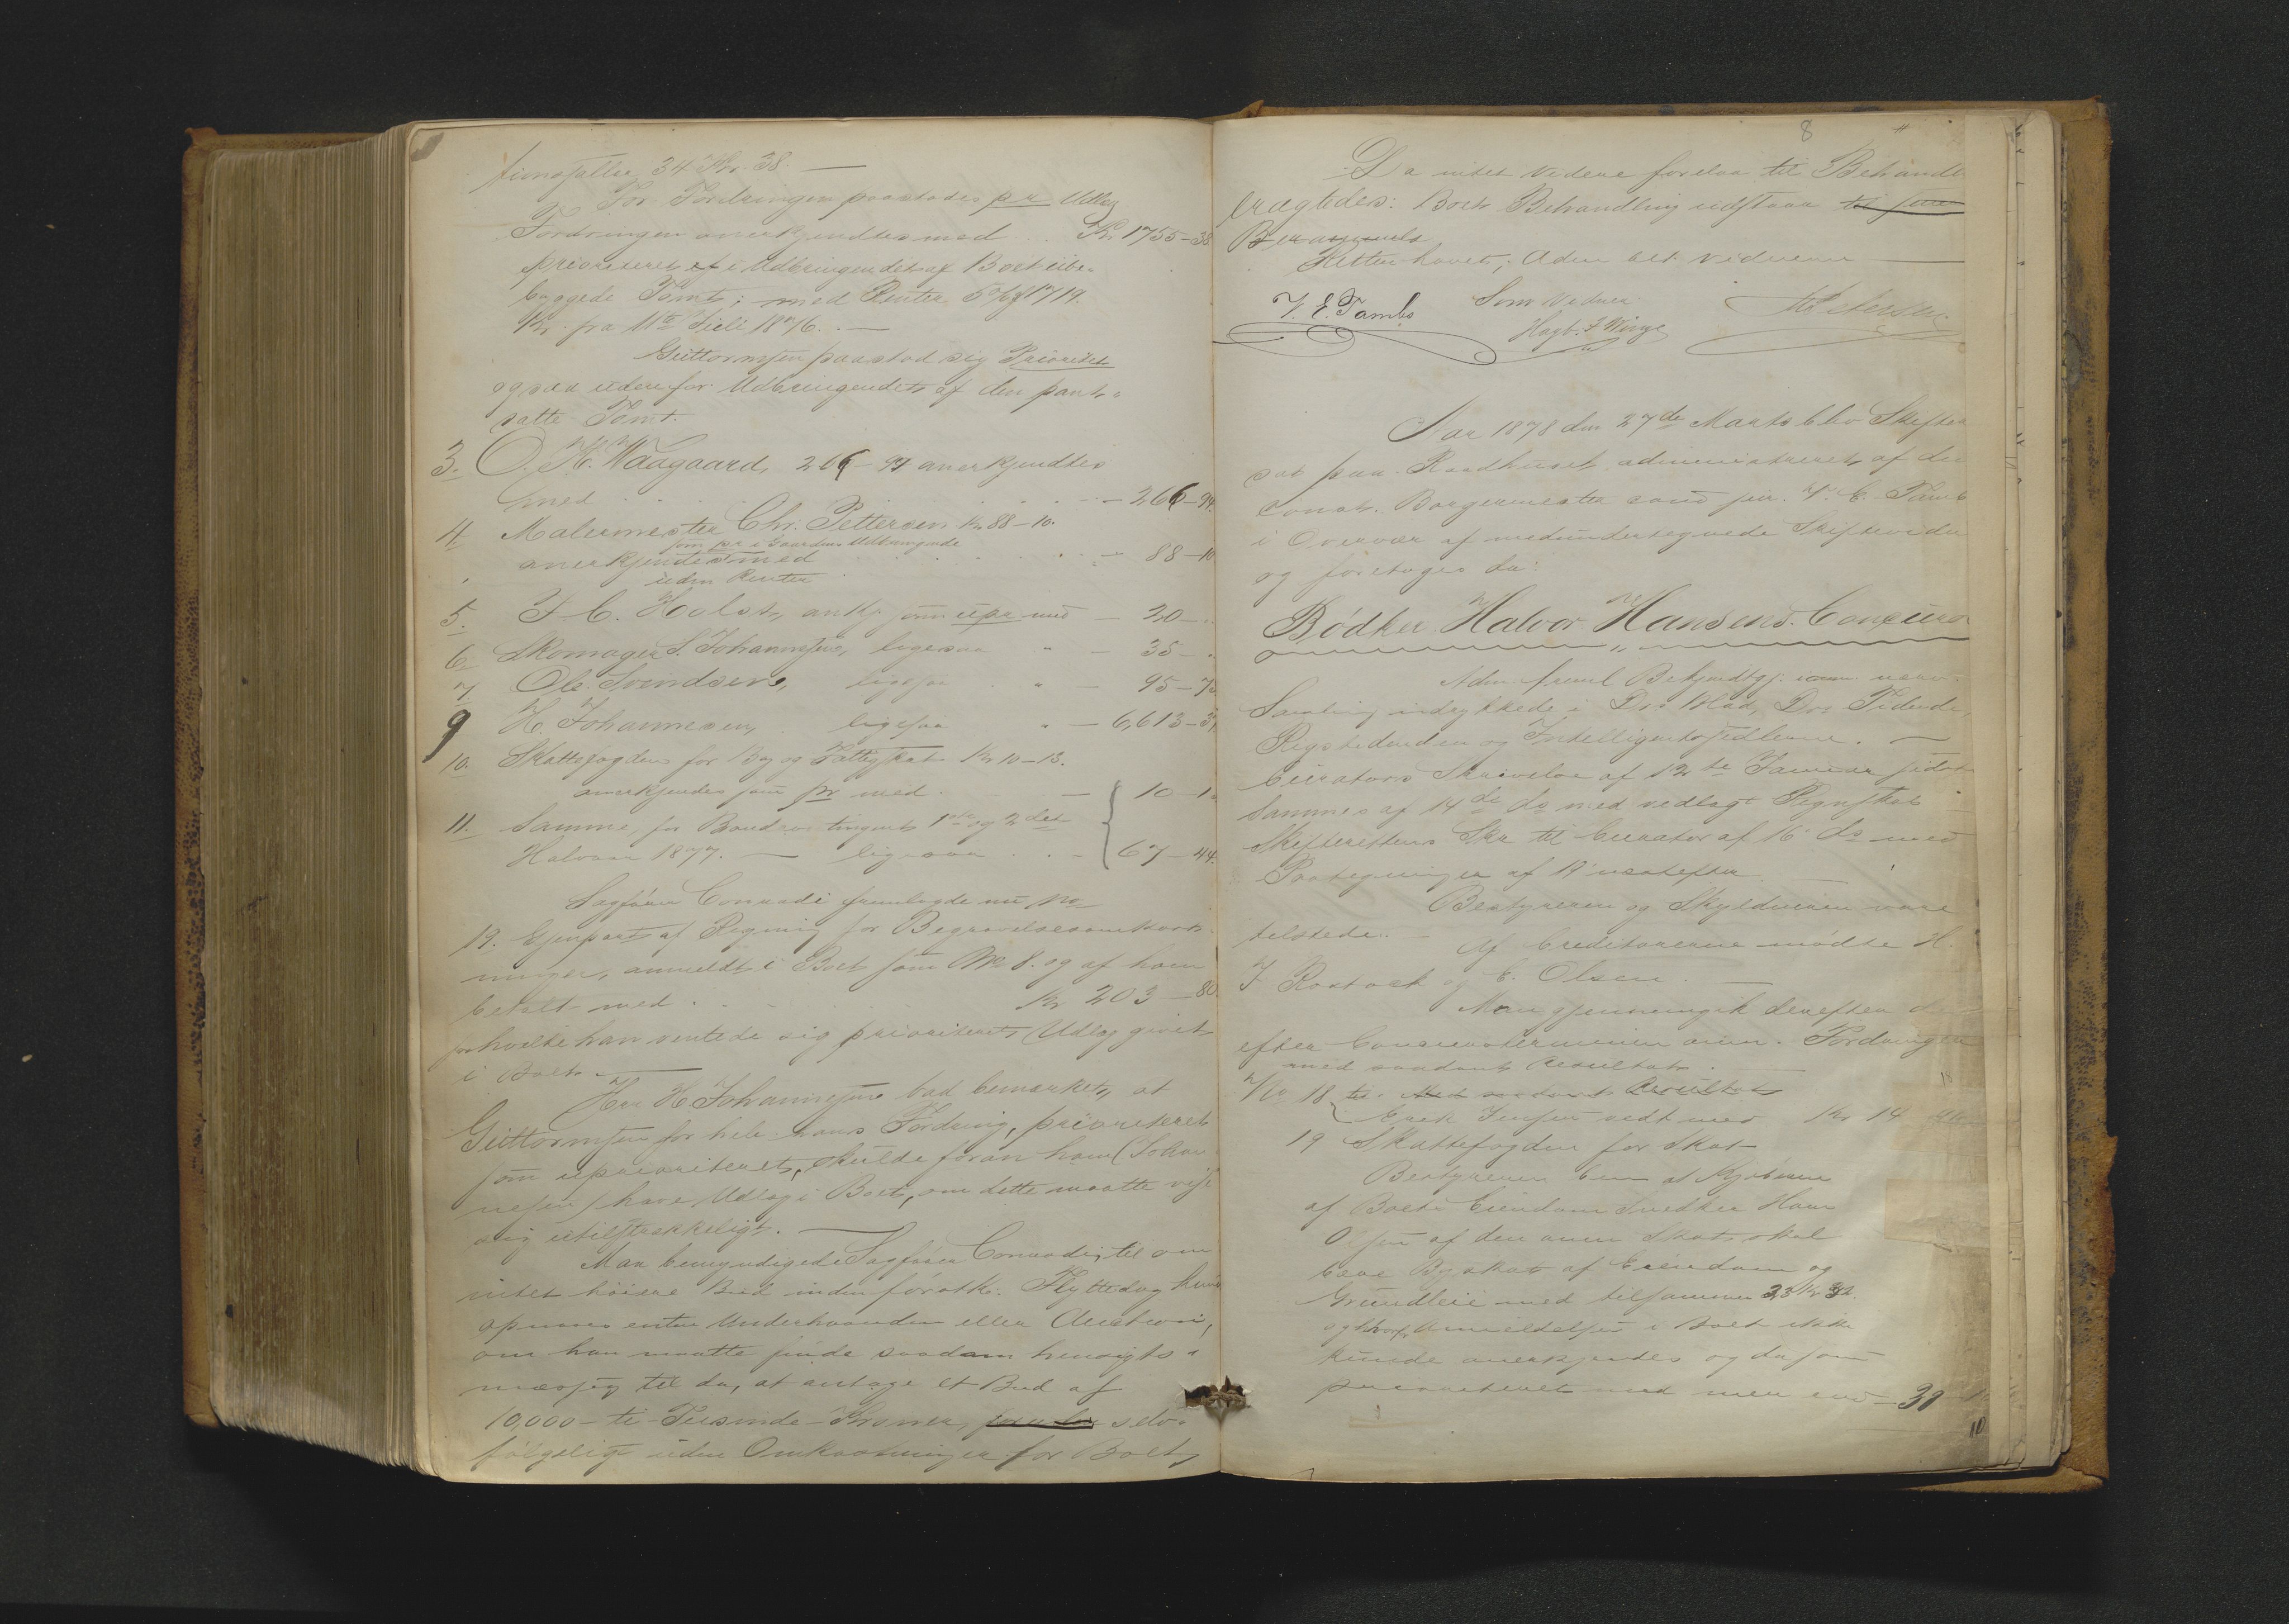 34 Kr. 38. —
For Fordringen paastodes pr Udlæg
Fordringen anerkjendtes med Kr. 1755-38
prioriteret i Udbringendet af Boets ube-
byggede Tomt; med Renter 5% af 1719.
Kr. fra 11te Juli 1876. —
Guttormsen paastod sig Prioritet
ogsaa udenfor Udbringendet af den pant-
satte Tomt.
3. O. K. Waagaard, 266-94 anerkjendtes
med — 266-94.
4. Malermester Chr. Pettersen Kr. 88-10.
som pr i Gaardens Udbringende
anerkjendtes med — 88-10
uden Renter
5. F. C. Holst, ankj. som upr med — 20-"
6. Skomager S. Johannsen, ligesaa " — 35-"
7. Ole Svendsen, ligesaa " — 95-73
9 H. Johannesen, ligesaa " — 6,613-
10. Skattefogden for By og Fattigskat Kr 10-13.
anerkjendes som pr med — 10-1
11. Samme, for Brandcontingent 1ste og 2det
Halvaar 1877. — ligesaa — 67-44.
Sagfører Conradi fremlagde nu No
12. Gjenpart af Regning for Begravelsesomkost-
ninger, anmeldt i Boet som No 8. og af ham
betalt med Kr 203-80.
for hvilke han ventede sig prioriteret Udlæg givet
i Boet. —
Herr H Johannesen bad bemærket, at
Guttormsen for hele hans Fordring, prioriteret
som uprioriteret, skulde foran ham (Johan
nesen) have Udlæg i Boet, om dette maatte vise
sig utilstrækkeligt. —
Man bemyndigede Sagfører Conradi, til om
intet høiere Bud inden førstk. Flyttedag kunde
opnaaes enten Underhaanden eller Auction,
om han maatte finde saadan hensigts-
mæssig til da, at antage et Bud af
10,000 - ti Tusinde - Kroner, selv-
følgelig uden Omkostninger for Boet,
8
Da intet videre forelaa til Behandl
bragtedes: Boets Behandling udstaar til
Retten hævet; Aden bet. Vidnerne —
V. E. Tambs Som Vidner
Hagb. F Winge
Aar 1878 den 27de Marts blev Skifte
sat paa Raadhuset administreret af den
const. Borgermester cand. jur. V. E. Tambs
i Overvær af medundertegnede Skiftevidn
og foretoges da:
Bødker Halvor Hansens Concurs
Adm. freml. Bekjendtg. nærv.
Samling indrykkede i Drs Blad, Drs Tidende,
Rigstidenden og Intelligentssedlerne. —
Curators Skrivelse af 12te Januar sidst
Sammes af 14de ds med vedlagt Regnskab
Skifterettens Skr til Curator af 16 ds med
Paategninger af
Bestyreren og Skyldneren vare
tilstede. — Af Creditorerne mødte H.
J Rostock og C. Olsen. —
Man gjennemgik derefter de
efter Concursterminen anm. Fordringer
med saadant Resultat.
No 18 til Med saadant Resultat
Jensen sidt med Kr 14
19 Skattefogden for Skat
Bestyreren bem. at Kjøberen
af Boets Eiendom Snedker Hans
Olsen af den anm Skat skal
bære Byskat af Eiendom og
Grundleie med tilsammen 23 Kr 32.
Anmeldelsen i Boet ikke
kunde anerkjendes og da som
prioriteret med mere end — 39
10